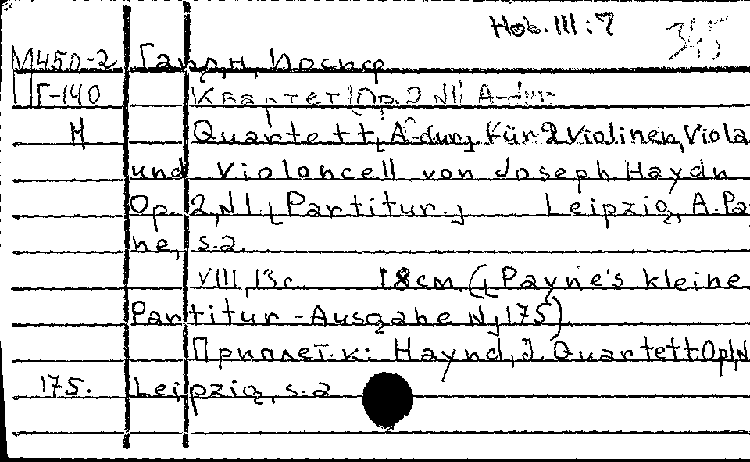 Hob. III : 7 345
М450-2 Гайдн, Иосиф
Г-140 Квартет, Op. 2 N1 A-dur
Н Quartett [A-dur] für 2 Violinen, Viola
und Violoncell von Joseph Haydn
Op. 2, N1. [Partitur.] Leipzig, A. Pay
ne, s.a.
VIII, 13 с. 18 cm. ([Payne's kleine
Partitur-Ausgabe N] 175)
Приплет. к: Haynd, J. Quartett Op1, N
175. Leipzig, s.a